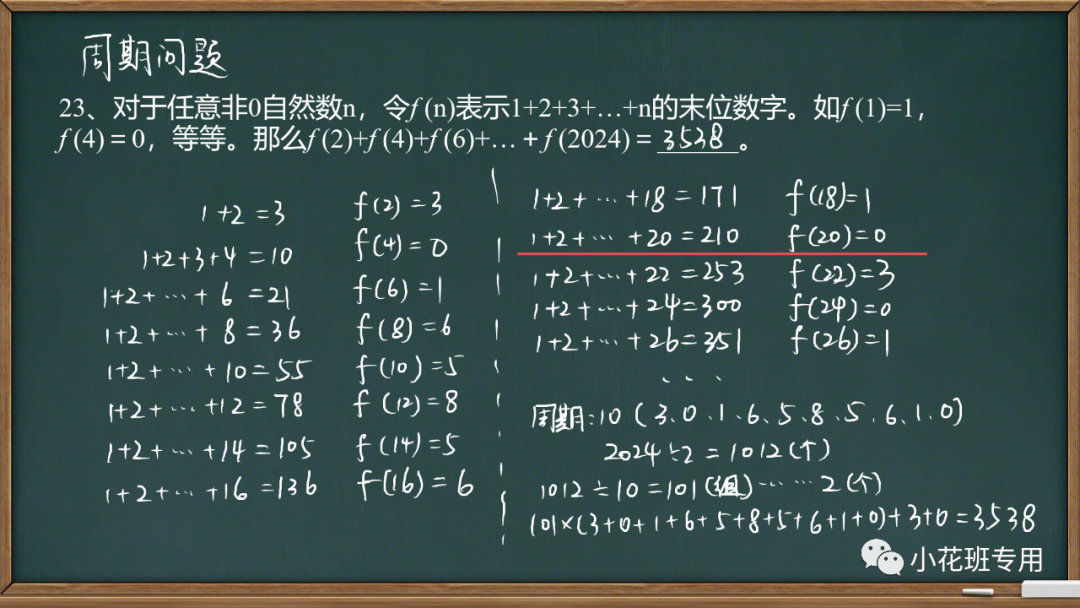 周期问题
23、对于任意非0自然数n，令f (n)表示1+2+3+…+n的末位数字。如f (1)=1，
f (4) = 0，等等。那么f (2)+f (4)+f (6)+…+ f (2024) = 3538。
1+2=3 f(2)=3
1+2+3+4=10 f(4)=0
1+2+…+6=21 f(6)=1
1+2+…+8=36 f(8)=6
1+2+…+10=55 f(10)=5
1+2+…+12=78 f(12)=8
1+2+…+14=105 f(14)=5
1+2+…+16=136 f(16)=6
1+2+…+18=171 f(18)=1
1+2+…+20=210 f(20)=0
1+2+…+22=253 f(22)=3
1+2+…+24=300 f(24)=0
1+2+…+26=351 f(26)=1
...
周期:10(3、0、1、6、5、8、5、6、1、0)
2024÷2=1012(个)
1012÷10=101(组)……2(个)
101×(3+0+1+6+5+8+5+6+1+0)+3+0=3538
小花班专用